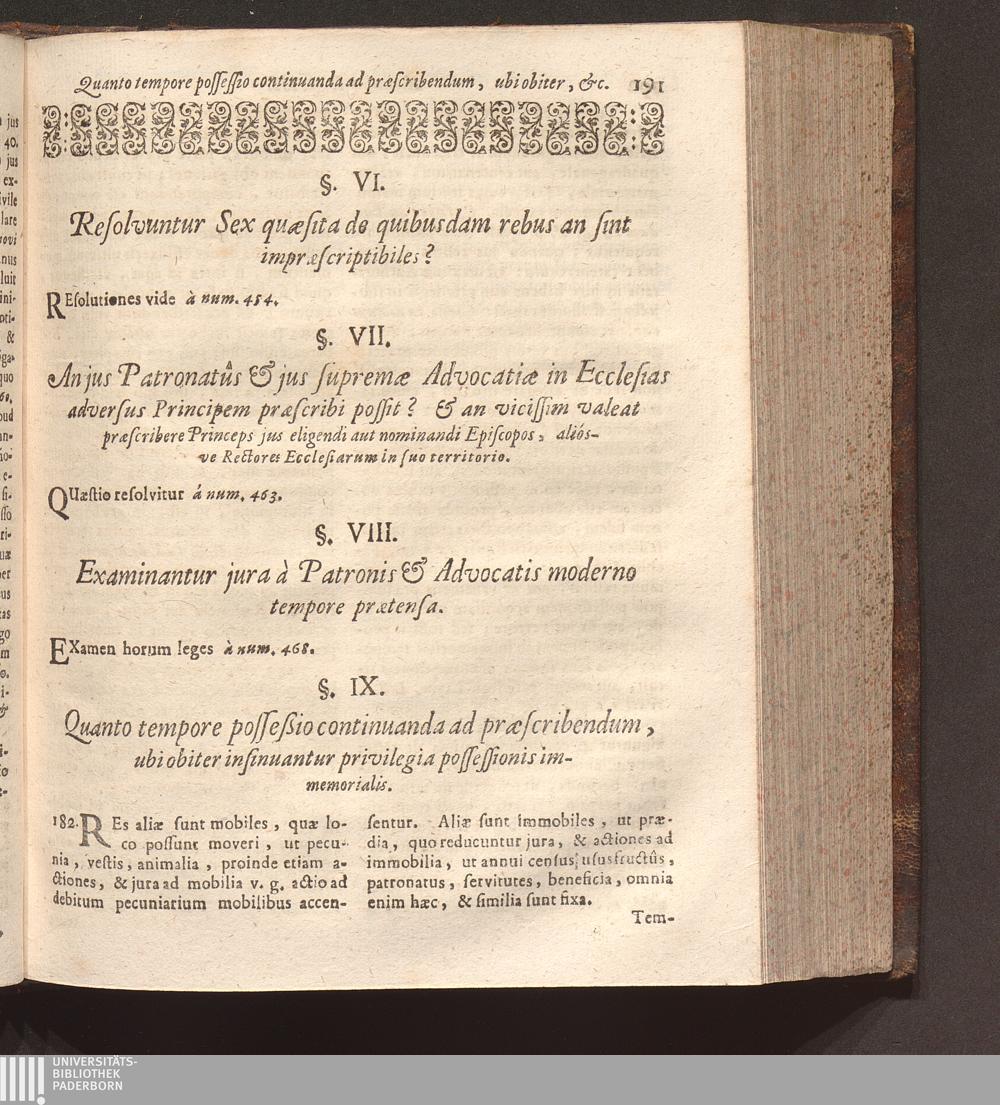 Quanto tempore possessio continuanda ad præscribendum, ubi obiter, &c. 191
§. VI.
Resolvuntur Sex quæsita de quibusdam rebus an sint
impræscriptibiles?
REsolutiones vide à num. 454.
§. VII.
An jus Patronatûs & jus supremæ Advocatiæ in Ecclesias
adversus Principem præscribi possit? & an vicissim valeat
præscribere Princeps jus eligendi aut nominandi Episcopos, aliós-
ve Rectores Ecclesiarum in suo territorio.
QUæstio resolvitur á num. 463.
§. VIII.
Examinantur jura à Patronis & Advocatis moderno
tempore prætensa.
EXamen horum leges à num. 468.
§. IX.
Quanto tempore possessio continuanda ad præscribendum,
ubi obiter insinuantur privilegia possessionis im-
memorialis.
182. REs aliæ sunt mobiles, quæ lo-
co possunt moveri, ut pecu-
nia, vestis, animalia, proinde etiam a-
ctiones, & jura ad mobilia v. g. actio ad
debitum pecuniarium mobilibus accen-
sentur. Aliæ sunt immobiles, ut præ-
dia, quo reducuntur jura, & actiones ad
immobilia, ut annui census, ususfructûs,
patronatus, servitutes, beneficia, omnia
enim hæc, & similia sunt fixa.
Tem-
UNIVERSITÄTS-
BIBLIOTHEK
PADERBORN